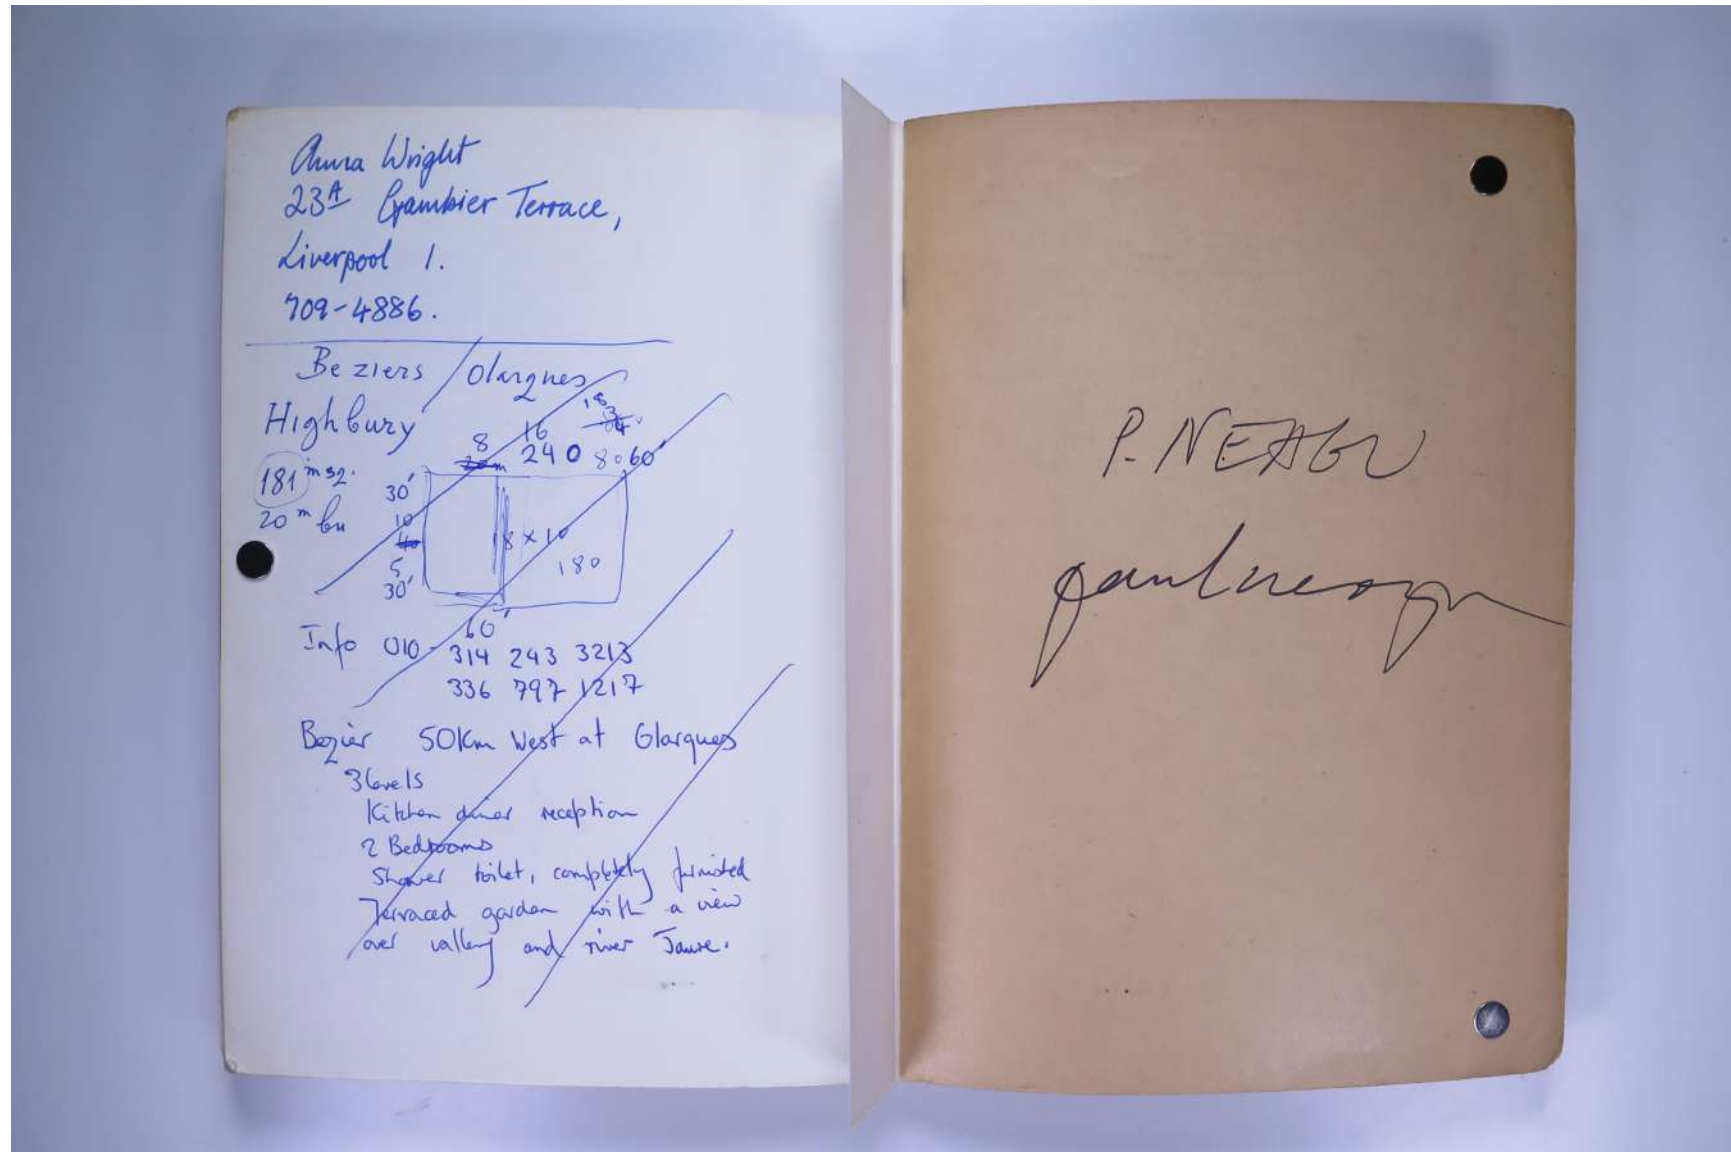 Wright
23A Gambier Terrace,
Liverpool 1.
709-4886.
Beziers / Olargues
Highbury
18
8 16
240 80 60'
181 m sq.
30'
20 m
10
8 x 10
5
180
30'
60'
Info 010 - 314 243 3213
336 797 1217
Bezier 50Km West at Olargues
3 levels
Kitchen diner reception
2 Bedrooms
Shower toilet, completely furnished
Terraced garden with a view
over valley and river Jaure.
P. NEAGU
paul neagu